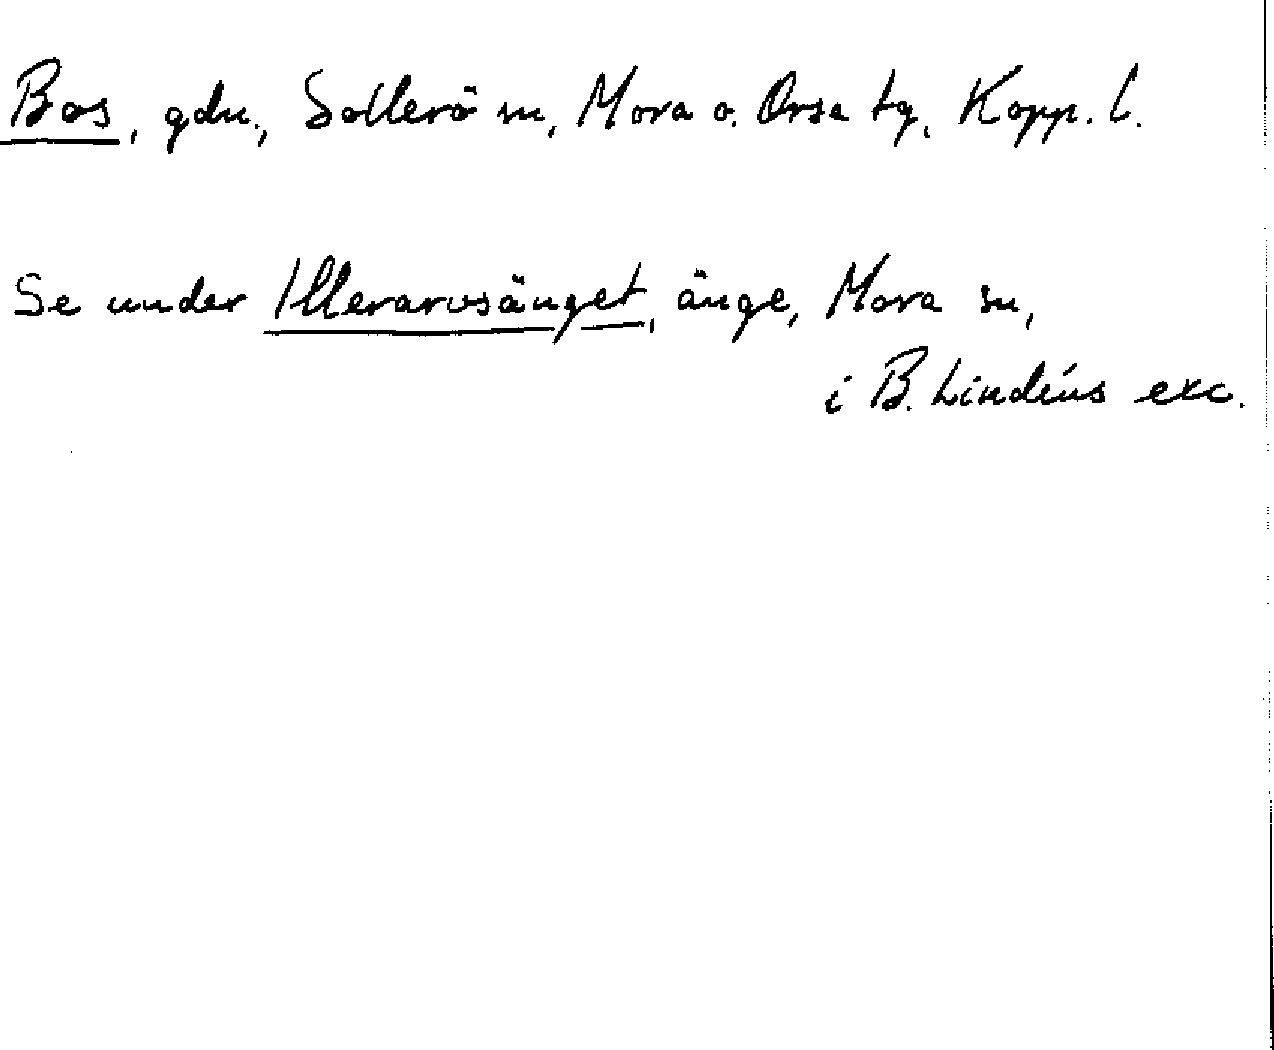 Bos, gdn., Sollerö sn, Mora o. Orsa tg, Kopp. l.
Se under Illerarvsänget, änge, Mora sn,
i B. Lindéns exc.